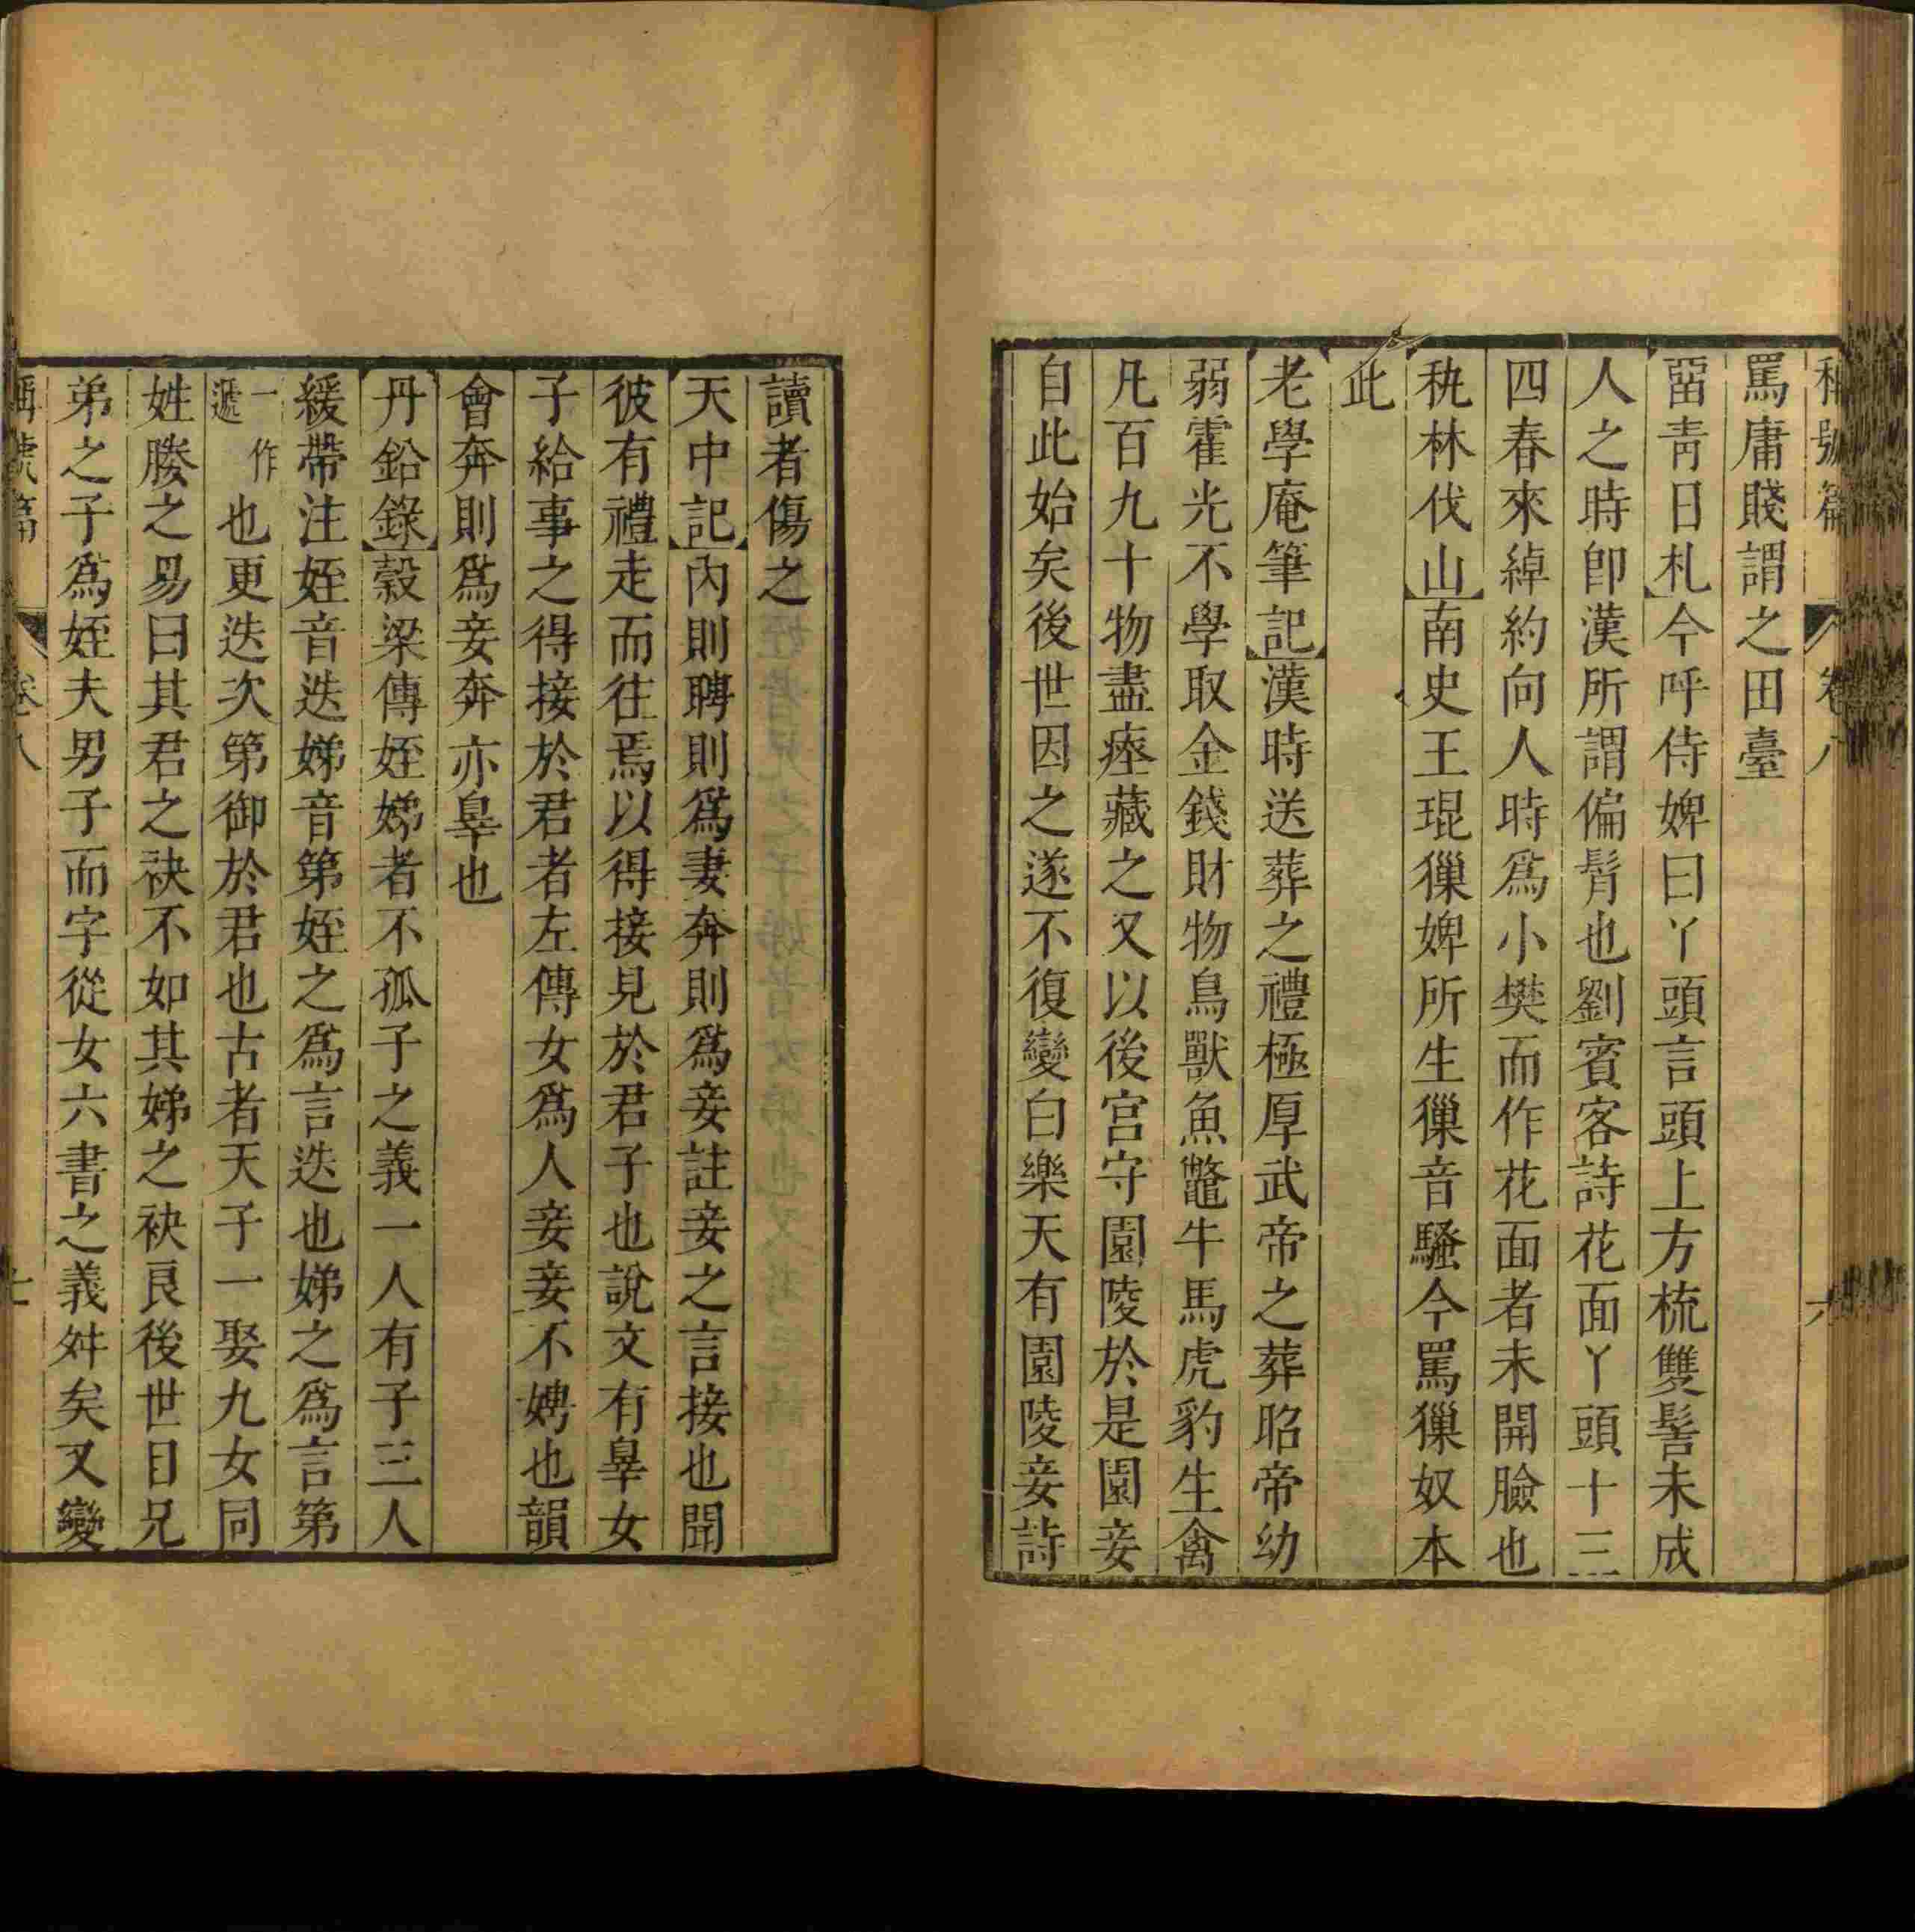 稱號篇 卷八 六
罵庸賤謂之田臺
畱青日札今呼侍婢曰丫頭言頭上方梳雙髻未成
人之時卽漢所謂偏髾也劉賓客詩花面丫頭十三
四春來綽約向人時爲小樊而作花面者未開臉也
秇林伐山南史王琨獿婢所生獿音騷今罵獿奴本
此
老學庵筆記漢時送葬之禮極厚武帝之葬昭帝幼
弱霍光不學取金錢財物鳥獸魚鼈牛馬虎豹生禽
凡百九十物盡瘞藏之又以後宮守園陵於是園妾
自此始矣後世因之遂不復變白樂天有園陵妾詩
讀者傷之
天中記內則聘則爲妻奔則爲妾註妾之言接也聞
彼有禮走而往焉以得接見於君子也說文有辠女
子給事之得接於君者左傳女爲人妾妾不娉也韻
會奔則爲妾奔亦辠也
丹鉛錄穀梁傳姪娣者不孤子之義一人有子三人
緩帶注姪音迭娣音第姪之爲言迭也娣之爲言第
一作遞也更迭次第御於君也古者天子一娶九女同
姓媵之易曰其君之袂不如其娣之袂良後世目兄
弟之子爲姪夫男子而字從女六書之義舛矣又變
稱號篇 卷八 七